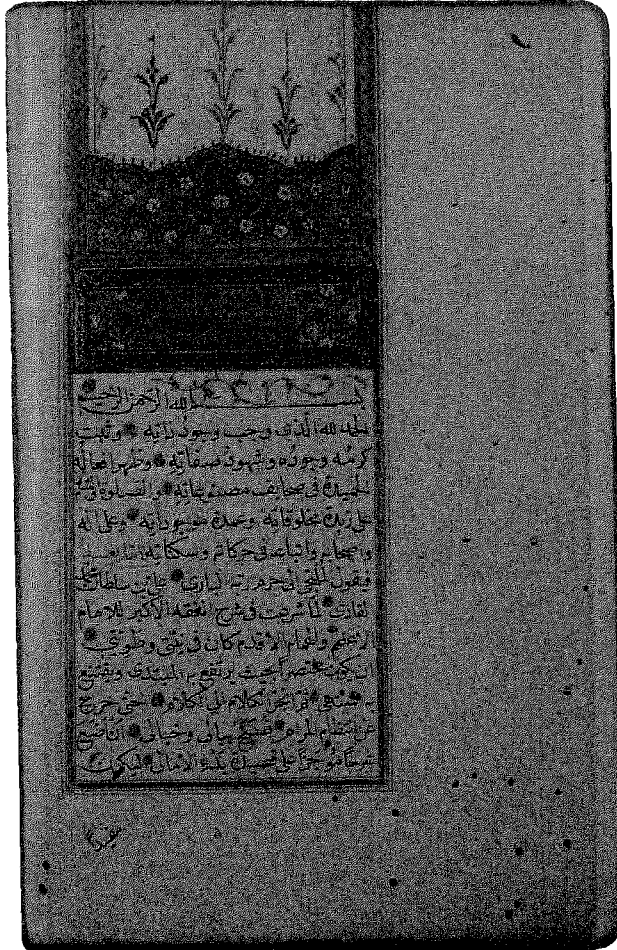 بسم الله الرحمن الرحيم
الحمد لله الذي وجب وجود ذاته وثبت
كرمه وجوده وشهود صفاته وظهر
الحميدة في صحايف مصنوعاته والصلوة
على زبدة مخلوقاته وعمدة موجوداته وعلى آله
واصحابه واتباعه في حركاته وسكناته اما بعد
فيقول الملتجي الى حرم ربه الباري علي بن سلطان محمد
القاري لما شرعت في شرح الفقه الاكبر للامام
الاعظم والهمام الاقدم كان في نيتي وطويتي
ان يكون مختصرا بحيث ينتفع به المبتدي ويقتنع
به المنتهي ثم انجر الكلام الى الكلام حتى خرج
عن نظام المرام فسنح ببالي وخيالي ان اضع
شرحا موجزا على قصيدة بدء الامالي ليكون